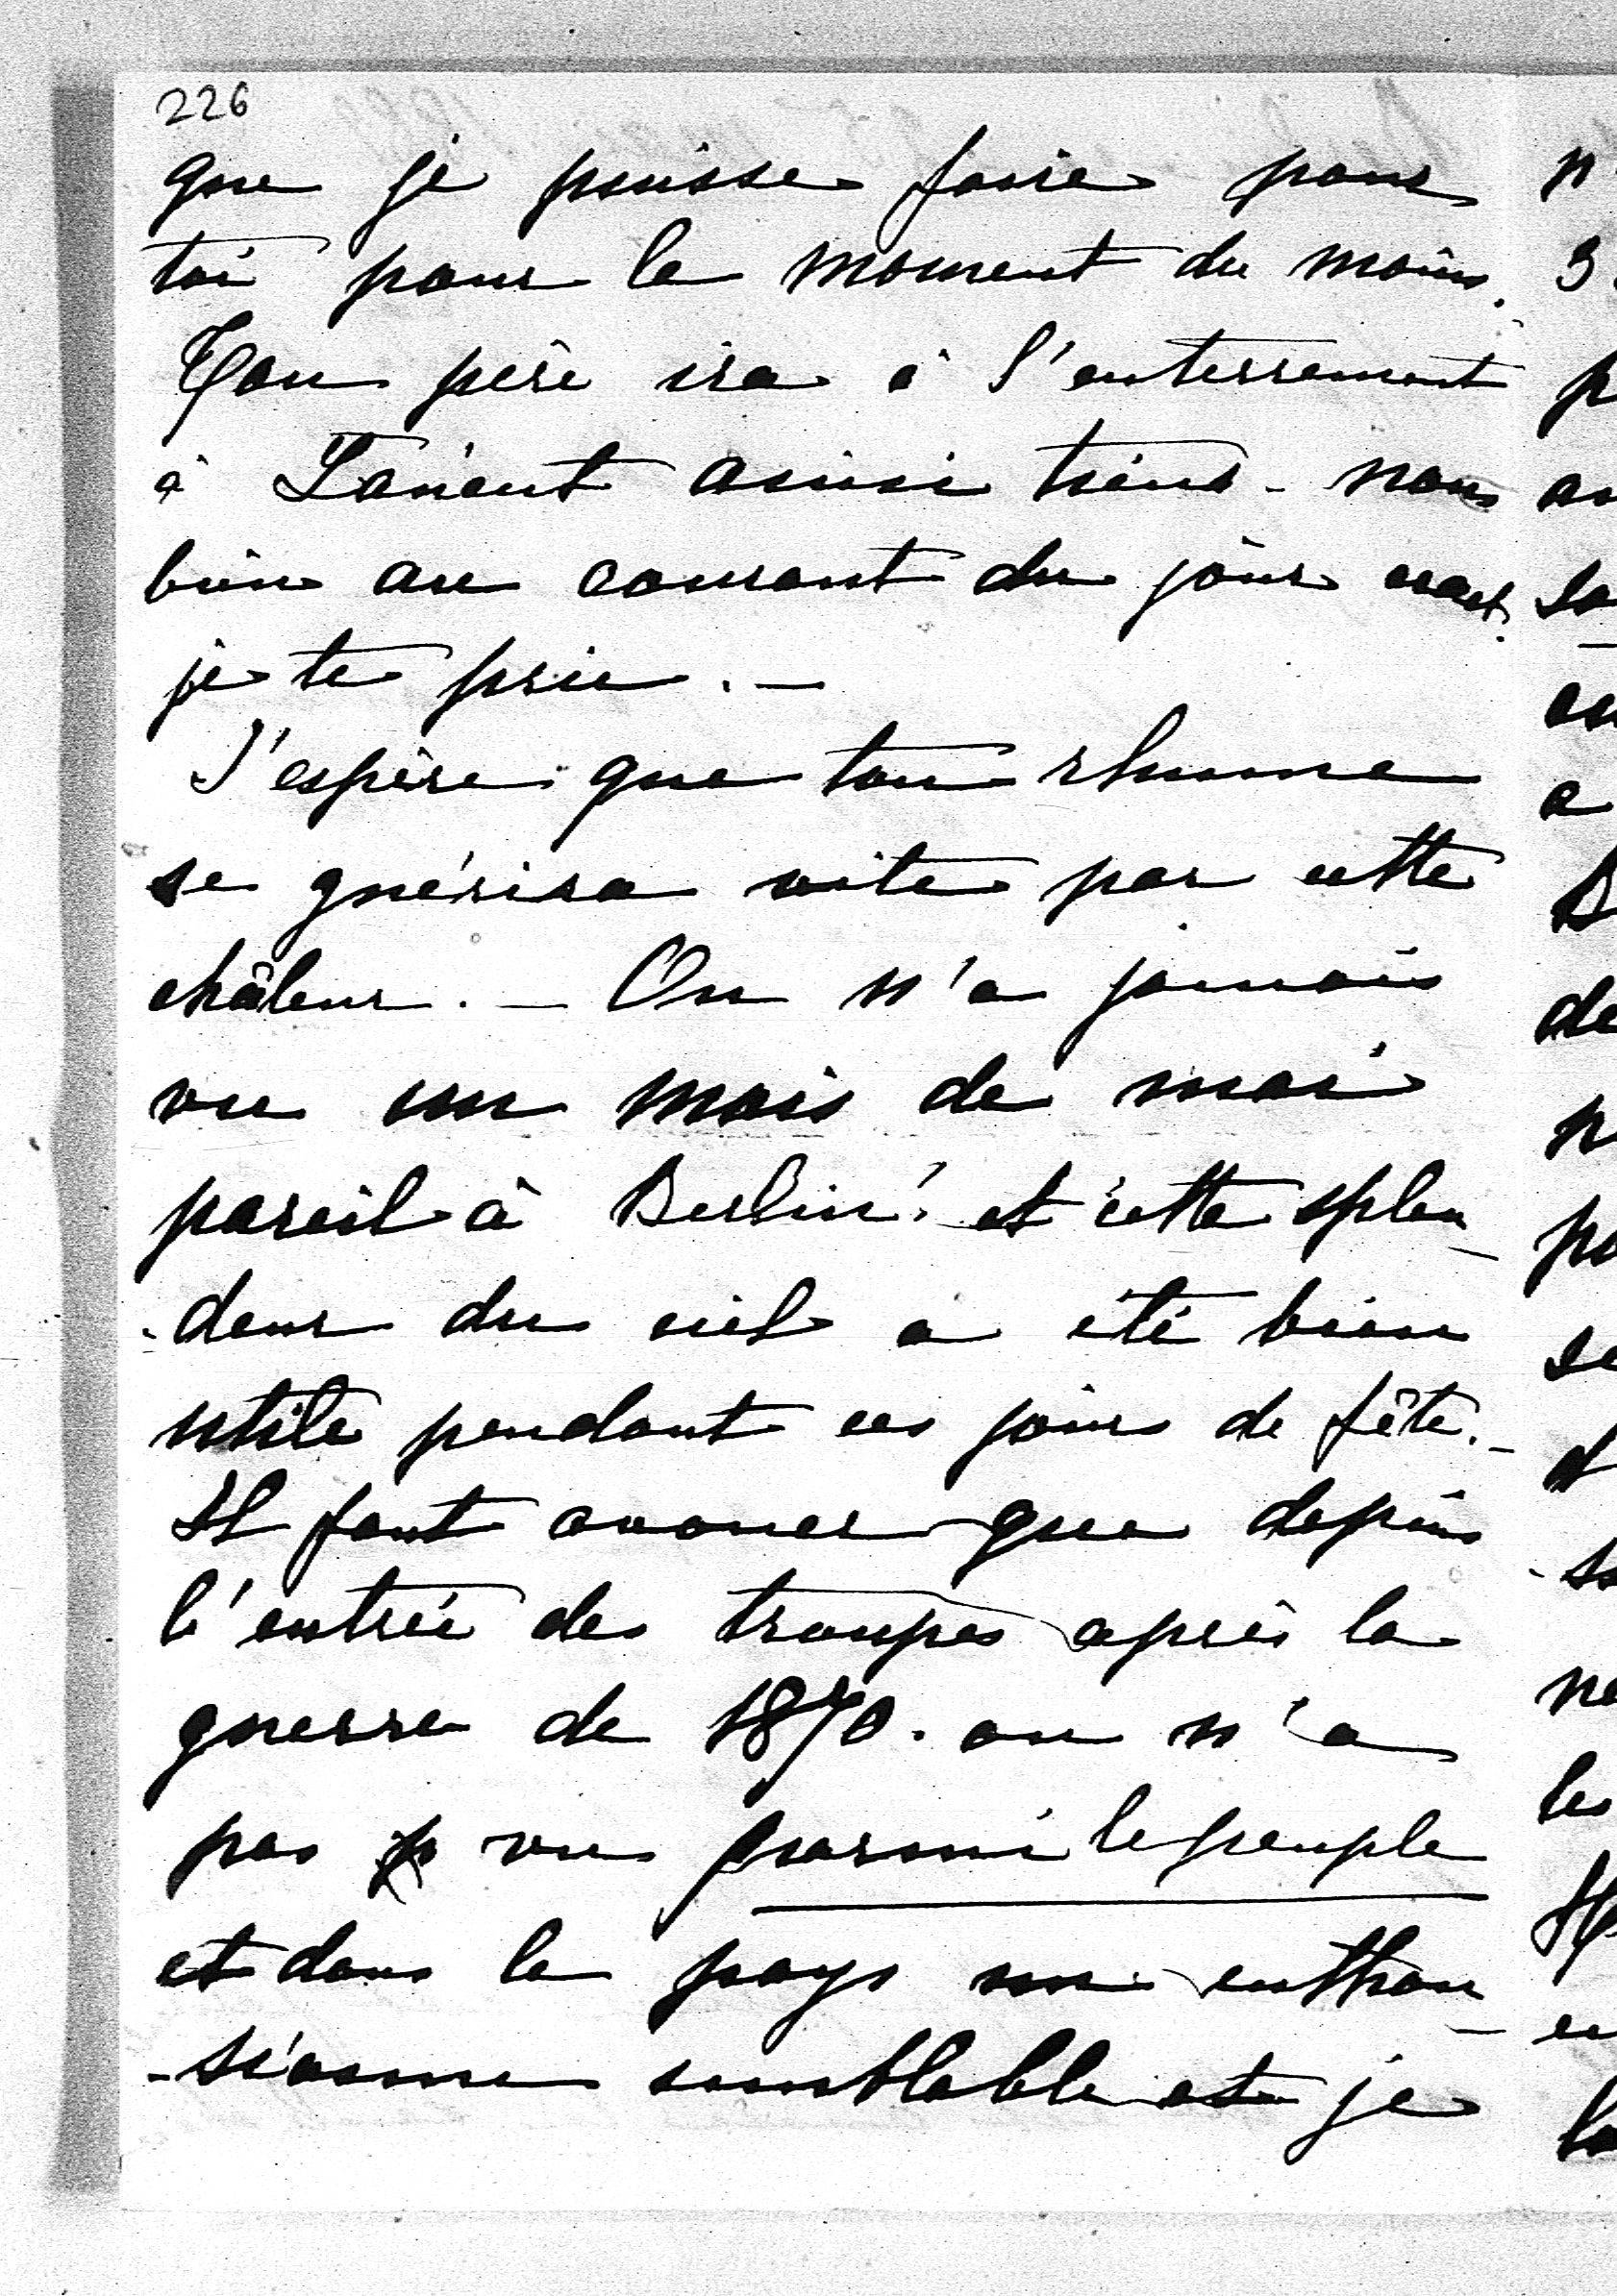 226
que je puisse faire pour
toi pour le moment du moins.
Ton père ira à l'enterrement
à Lancut ainsi tiens-nous
bien au courant du jour exact.
je te prie. —
J'espère que ton rhume
se guérira vite par cette
châleur. — On n'a jamais
vu un mois de mai
pareil à Berlin! et cette splen-
-deur du ciel a été bien
utile pendant ces jours de fête. -
Il faut avouer que depuis
l'entrée des troupes après la
guerre de 1870. on n'a
pas vu parmi le peuple
et dans le pays un enthou-
-siasme semblable et je